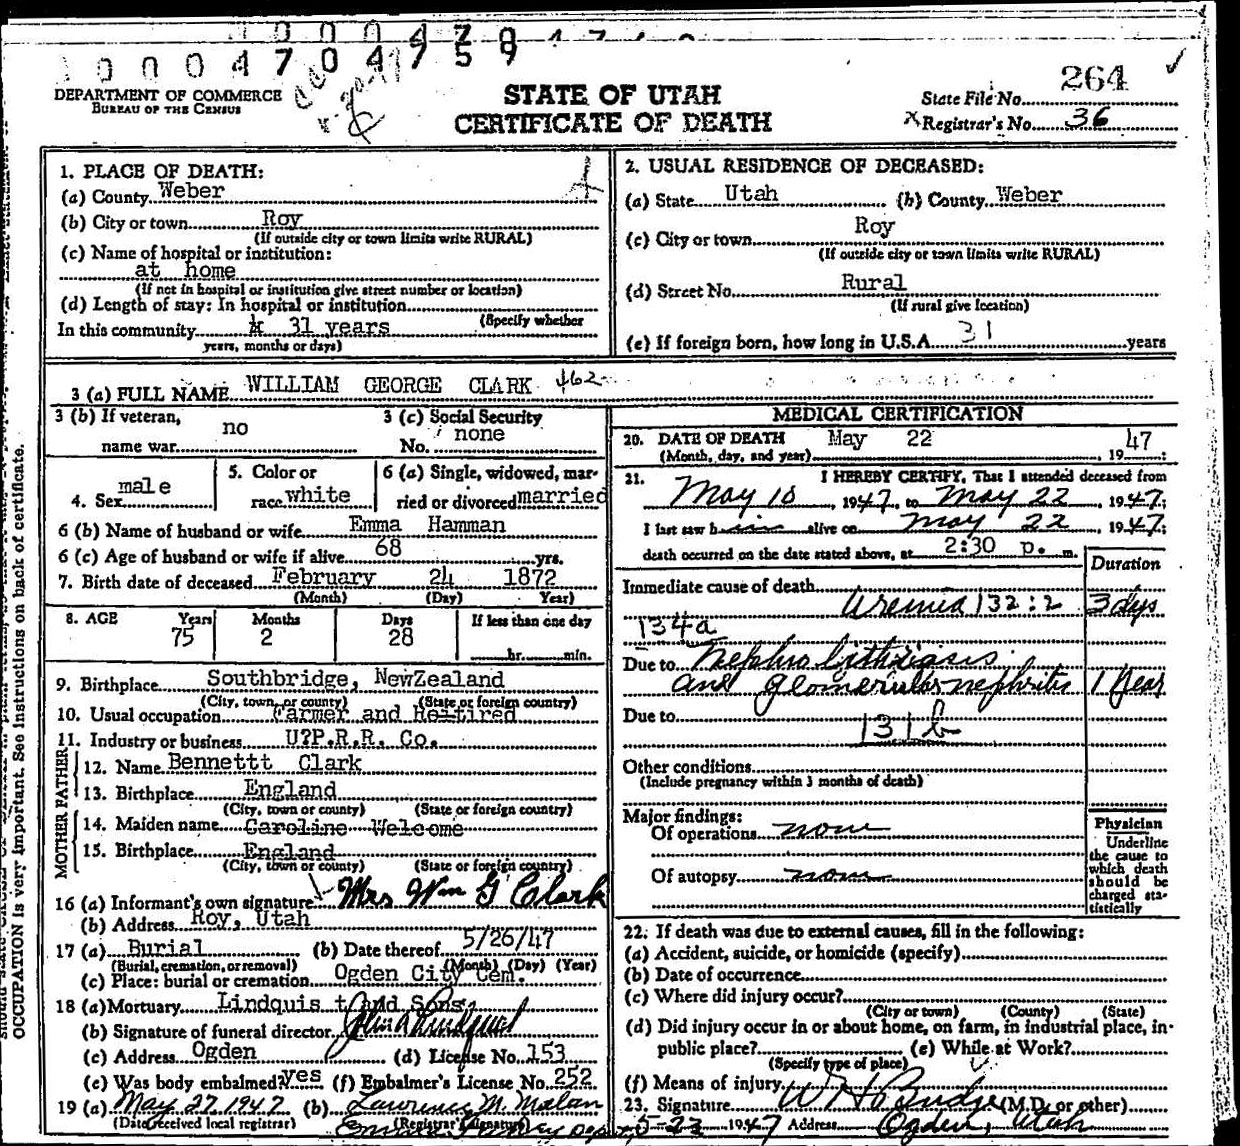 0 0 0 4 7 0 4 7 5 9
DEPARTMENT OF COMMERCE
BUREAU OF THE CENSUS
STATE OF UTAH
CERTIFICATE OF DEATH
264
State File No.
x Registrar's No. 36
1. PLACE OF DEATH:
(a) County Weber
(b) City or town Roy
(If outside city or town limits write RURAL)
(c) Name of hospital or institution:
at home
(If not in hospital or institution give street number or location)
(d) Length of stay: In hospital or institution
(Specify whether
In this community 31 years
years, months or days)
2. USUAL RESIDENCE OF DECEASED:
(a) State Utah (b) County Weber
(c) City or town Roy
(If outside city or town limits write RURAL)
(d) Street No. Rural
(If rural give location)
(e) If foreign born, how long in U.S.A. 31 years
3 (a) FULL NAME WILLIAM GEORGE CLARK 462
3 (b) If veteran,
name war no
3 (c) Social Security
No. none
4. Sex male
5. Color or
race white
6 (a) Single, widowed, mar-
ried or divorced married
6 (b) Name of husband or wife Emma Hamman
6 (c) Age of husband or wife if alive 68 yrs.
7. Birth date of deceased February 24 1872
(Month) (Day) Year)
8. AGE Years Months Days If less than one day
75 2 28 hr. min.
9. Birthplace Southbridge, NewZealand
(City, town, or county) (State or foreign country)
10. Usual occupation Farmer and Reitired
11. Industry or business U?P.R.R. Co.
FATHER
12. Name Bennettt Clark
13. Birthplace England
(City, town or county) (State or foreign country)
MOTHER
14. Maiden name Caroline Welcome
15. Birthplace England
(City, town or county) (State or foreign country)
16 (a) Informant's own signature Mrs Wm G Clark
(b) Address Roy, Utah
17 (a) Burial (b) Date thereof 5/26/47
(Burial, cremation, or removal) (Month) (Day) (Year)
(c) Place: burial or cremation Ogden City Cem.
18 (a) Mortuary Lindquis t and Sons
(b) Signature of funeral director
(c) Address Ogden (d) License No. 153
(e) Was body embalmed? yes (f) Embalmer's License No. 252
19 (a) May 27 1947 (b) Lawrence M. Malan
(Date received local registrar) (Registrar's signature)
MEDICAL CERTIFICATION
20. DATE OF DEATH May 22 1947
(Month, day, and year)
21. I HEREBY CERTIFY, That I attended deceased from
May 10, 1947, to May 22, 1947;
I last saw him alive on May 22, 1947;
death occurred on the date stated above, at 2:30 p. m.
Duration
Immediate cause of death
Uremia 132:2 3 dys
134a
Due to Nephro lithiasis
and glomerular nephritis 1 Year
Due to
131b
Other conditions
(Include pregnancy within 3 months of death)
Major findings:
Of operations none
Of autopsy none
Physician
Underline
the cause to
which death
should be
charged sta-
tistically
22. If death was due to external causes, fill in the following:
(a) Accident, suicide, or homicide (specify)
(b) Date of occurrence
(c) Where did injury occur?
(City or town) (County) (State)
(d) Did injury occur in or about home, on farm, in industrial place, in-
public place? (e) While at Work?
(Specify type of place)
(f) Means of injury
23. Signature W H Budge (M.D. or other)
5-23 1947 Address Ogden, Utah
OCCUPATION is very important. See instructions on back of certificate.